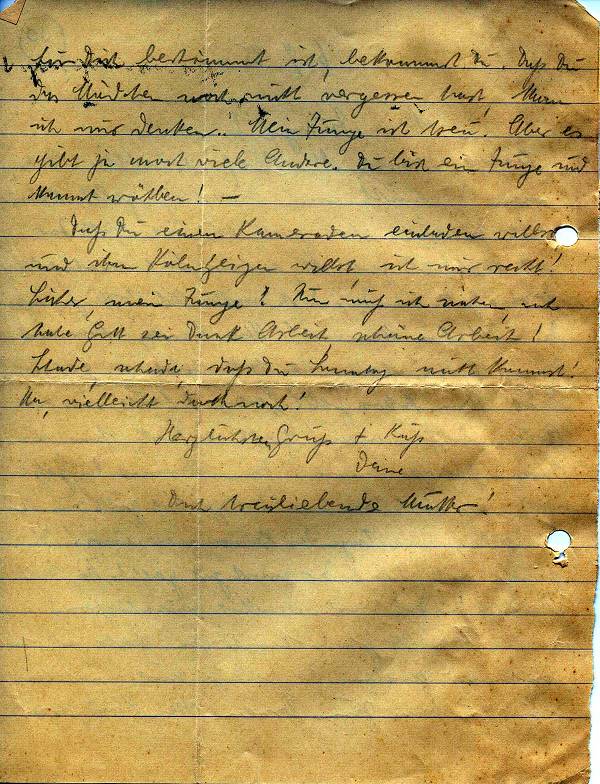 für Dich bestimmt ist, bekommst Du. Daß Du
das Mädchen noch nicht vergessen hast, kann
ich mir denken. Mein Junge ist treu. Aber es
gibt ja noch viele Andere. Du bist ein Junge und
kannst wählen! –
Daß Du einen Kameraden einladen willst
und ihm Köln zeigen willst, ist mir recht!
Sicher, mein Junge! Nun muß ich nähen, ich
habe Gott sei Dank Arbeit, schöne Arbeit!
Schade, schade, daß Du Sonntag nicht kommst!
Na, vielleicht doch noch!
Herzlichsten Gruß + Kuß
Deine
Dich treuliebende Mutter!